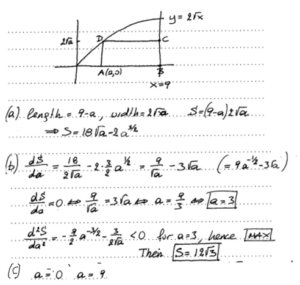 y = 2√x
2√a
D
C
A(a,0)
B
x=9
(a) length = 9-a, width = 2√a S=(9-a)2√a
⇒ S = 18√a - 2a^{3/2}
(b) dS/da = 18/2√a - 2·3/2 a^{1/2} = 9/√a - 3√a (= 9a^{-1/2} - 3√a)
dS/da = 0 ⇔ 9/√a = 3√a ⇔ a = 9/3 ⇔ a = 3
d²S/da² = -9/2 a^{-3/2} - 3/2√a < 0 for a=3, hence MAX
Then S = 12√3
(c) a = 0 a = 9